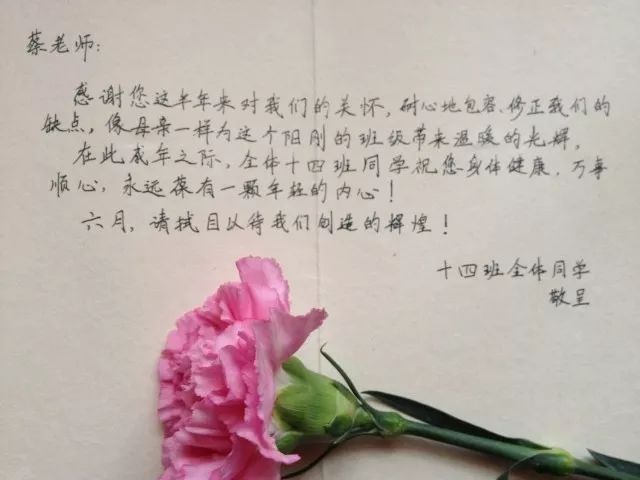 蔡老师:
感谢您这半年来对我们的关怀,耐心地包容、修正我们的
缺点,像母亲一样为这个阳刚的班级带来温暖的光辉。
在此成年之际,全体十四班同学祝您身体健康,万事
顺心,永远葆有一颗年轻的内心!
六月,请拭目以待我们创造的辉煌!
十四班全体同学
敬呈